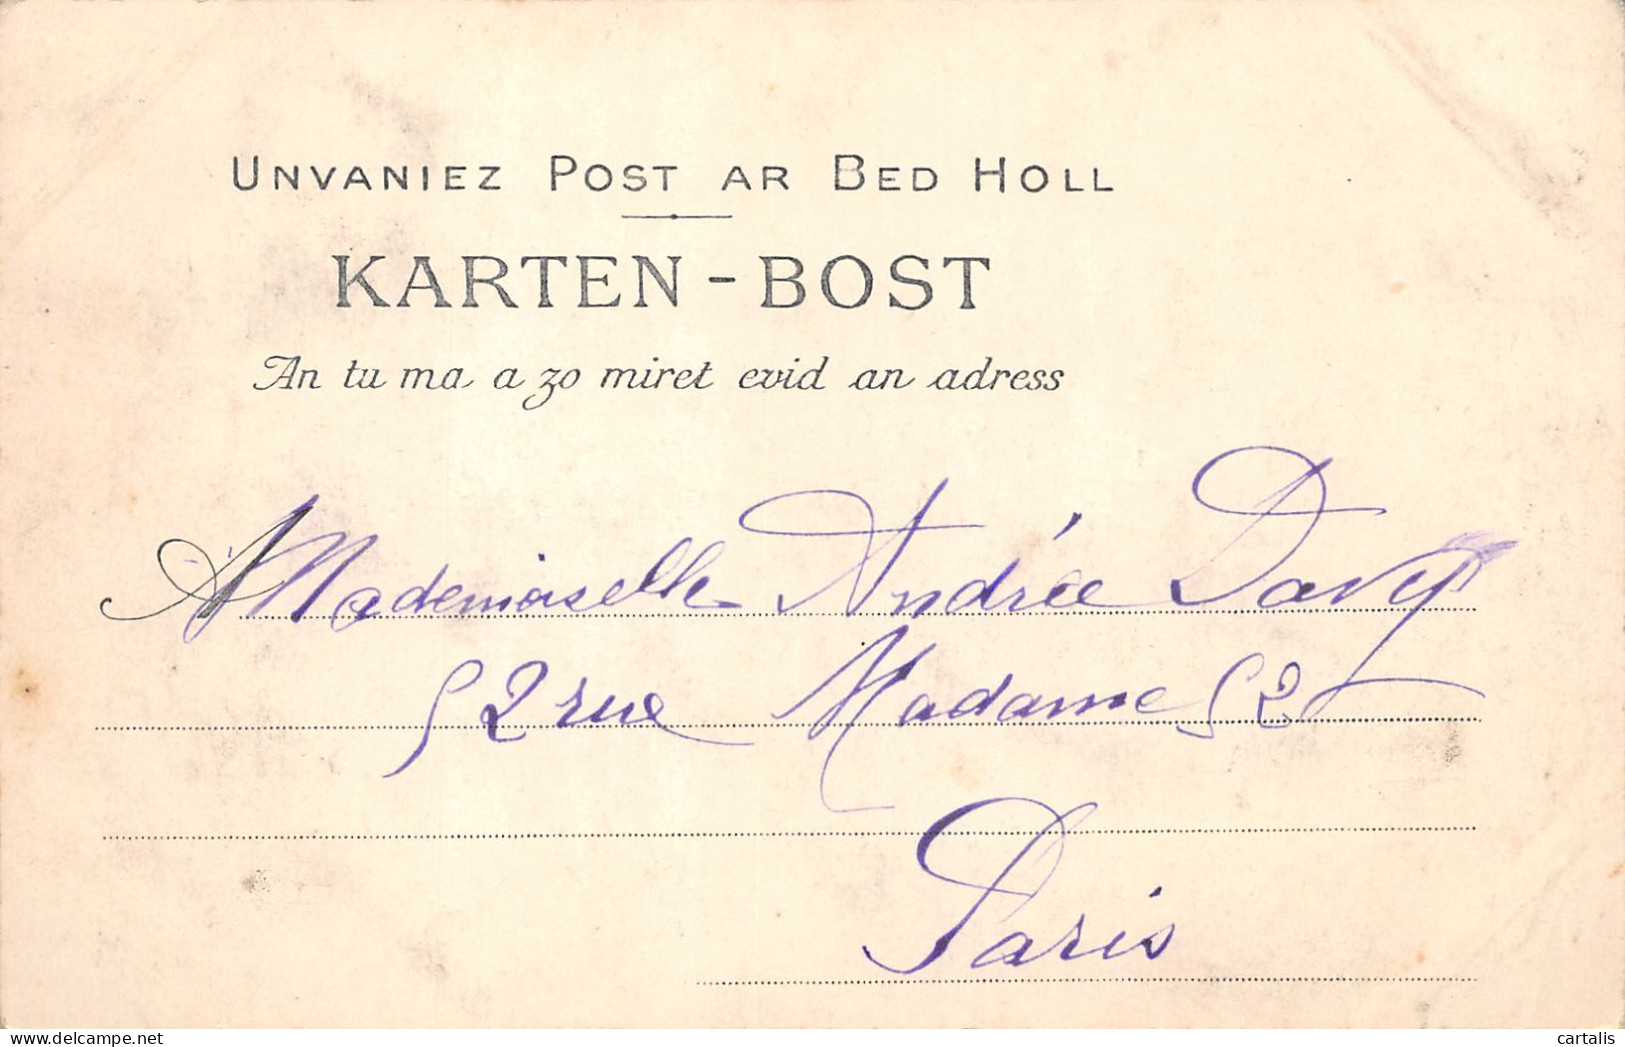 UNVANIEZ POST AR BED HOLL
KARTEN-BOST
An tu ma a zo miret evid an adress
A Mademoiselle Andrée Davy
52 rue Madame 52
Paris
cartalis